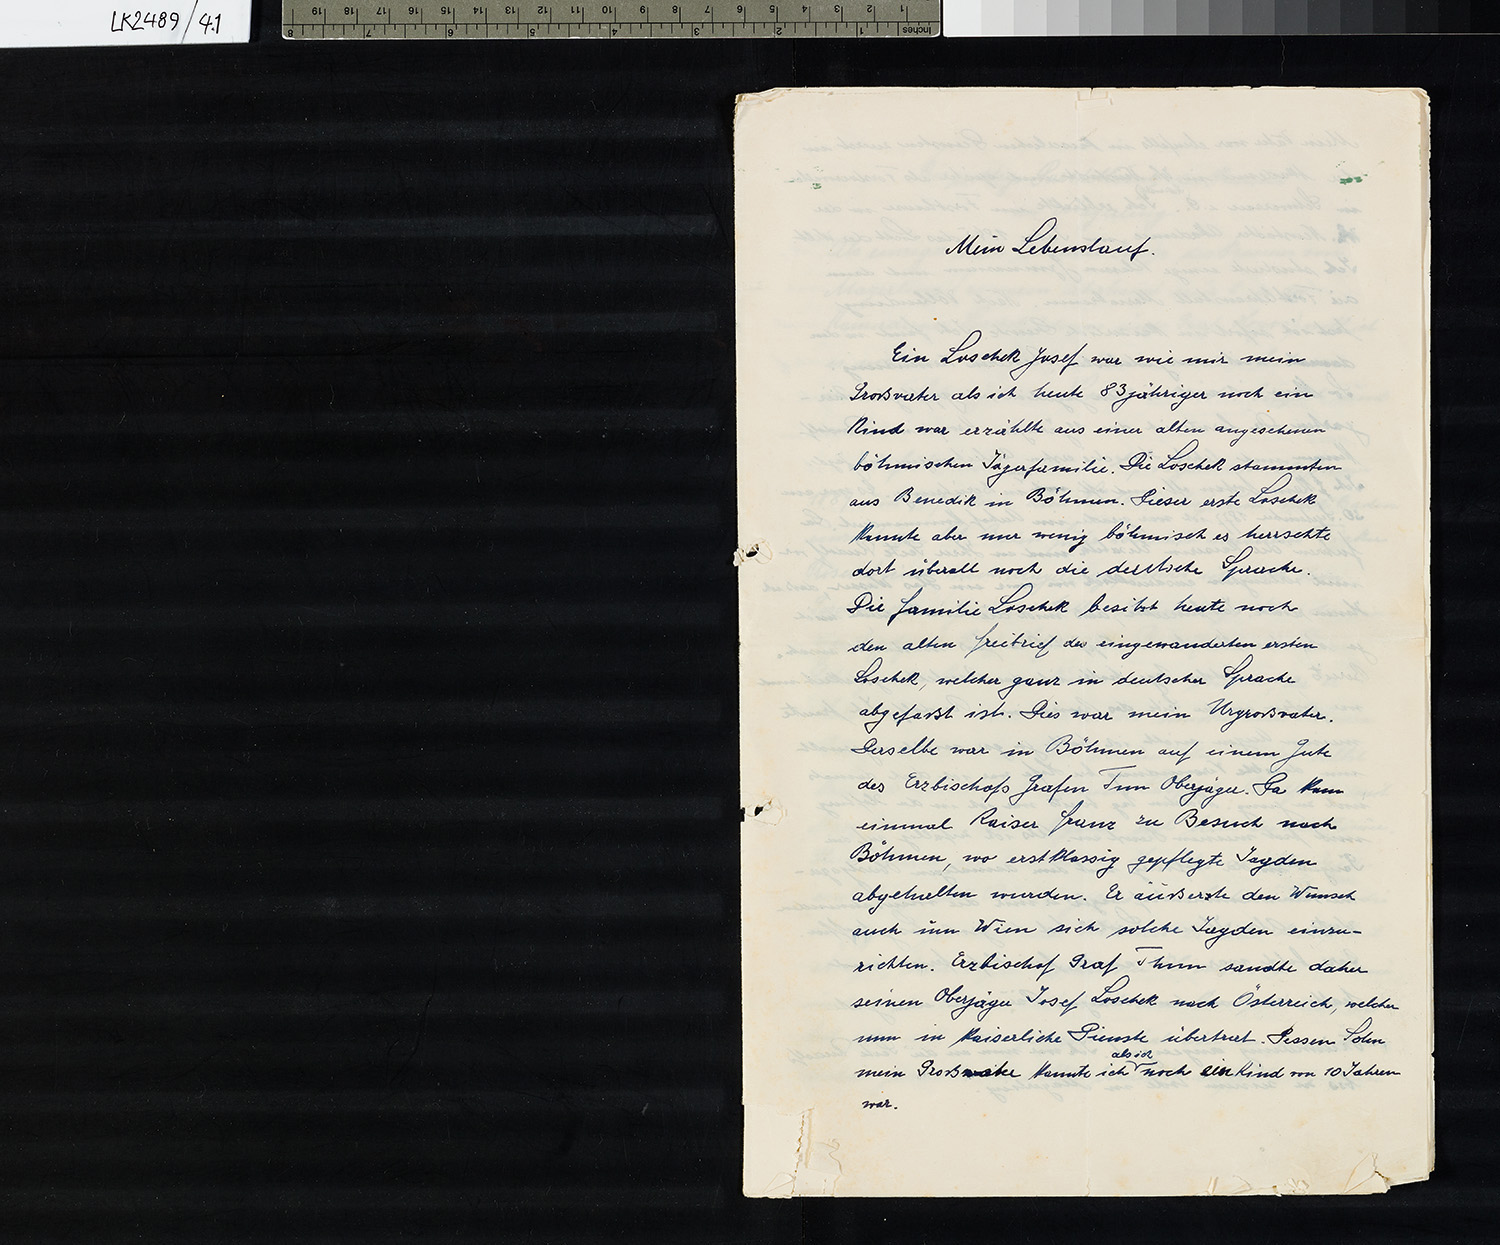 LK2489/41
Mein Lebenslauf.
Ein Loschek Josef war wie mir mein
Großvater als ich heute 83jähriger noch ein
Kind war erzählte aus einer alten angesehenen
böhmischen Jägerfamilie. Die Loschek stammten
aus Benedik in Böhmen. Dieser erste Loschek
kannte aber nur wenig böhmisch es herrschte
dort überall noch die deutsche Sprache.
Die Familie Loschek besitzt heute noch
den alten Freibrief des eingewanderten ersten
Loschek, welcher ganz in deutscher Sprache
abgefaßt ist. Dies war mein Urgroßvater.
Derselbe war in Böhmen auf einem Gute
des Erzbischofs Grafen Tun Oberjäger. Da kam
einmal Kaiser Franz zu Besuch nach
Böhmen, wo erstklassig gepflegte Jagden
abgehalten wurden. Er äüßerste den Wunsch
auch inn Wien sich solche Jagden einzu-
richten. Erzbischof Graf Thun sandte daher
seinen Oberjäger Josef Loschek nach Österreich, welcher
nun in kaiserliche Dienste übertrat. Dessen Sohn
mein Großvater kannte ich als ich noch ein Kind von 10 Jahren
war.